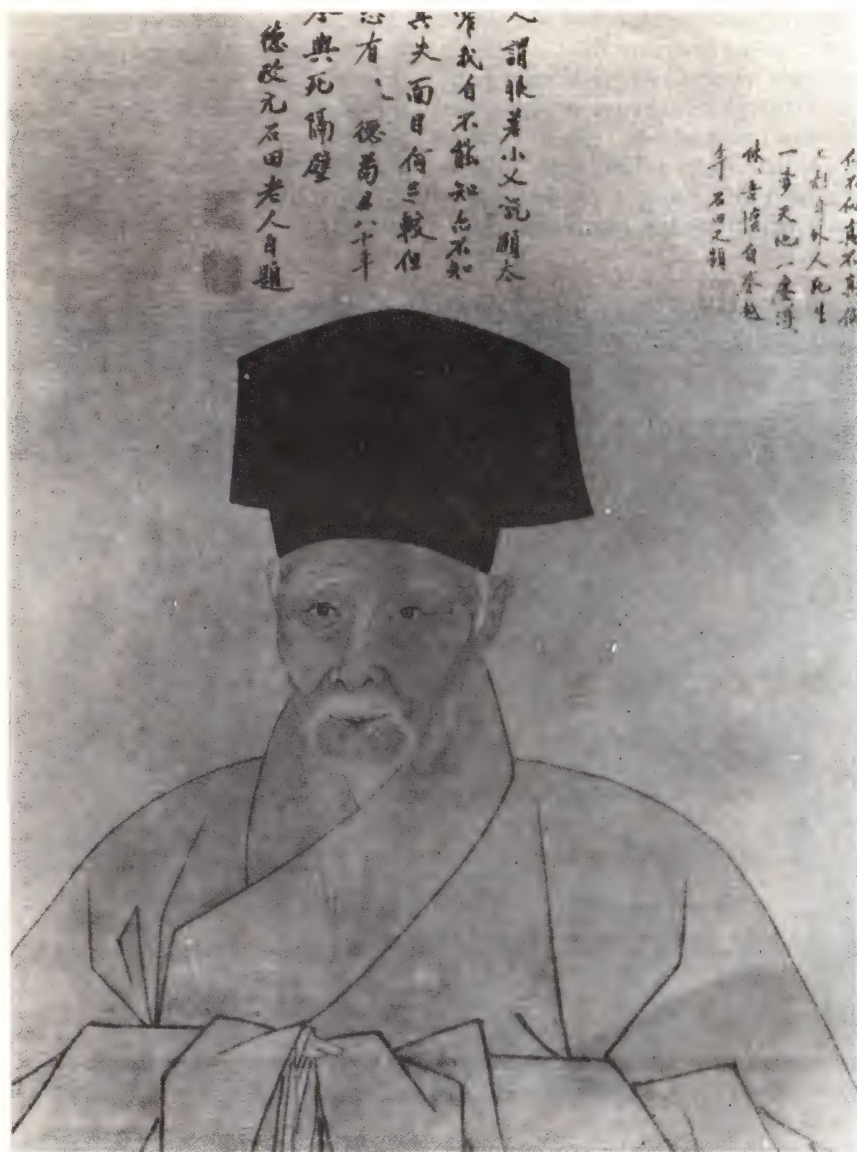 似不似真不真紙
上影身外人死生
一夢天地一塵浮、
休、吾懷自春越
年石田又題
人謂眼差小又說頤太
窄我自不能知亦不知
其失面目何足較但
恐有、德苟且八十年
今與死隔壁
德改元石田老人自題